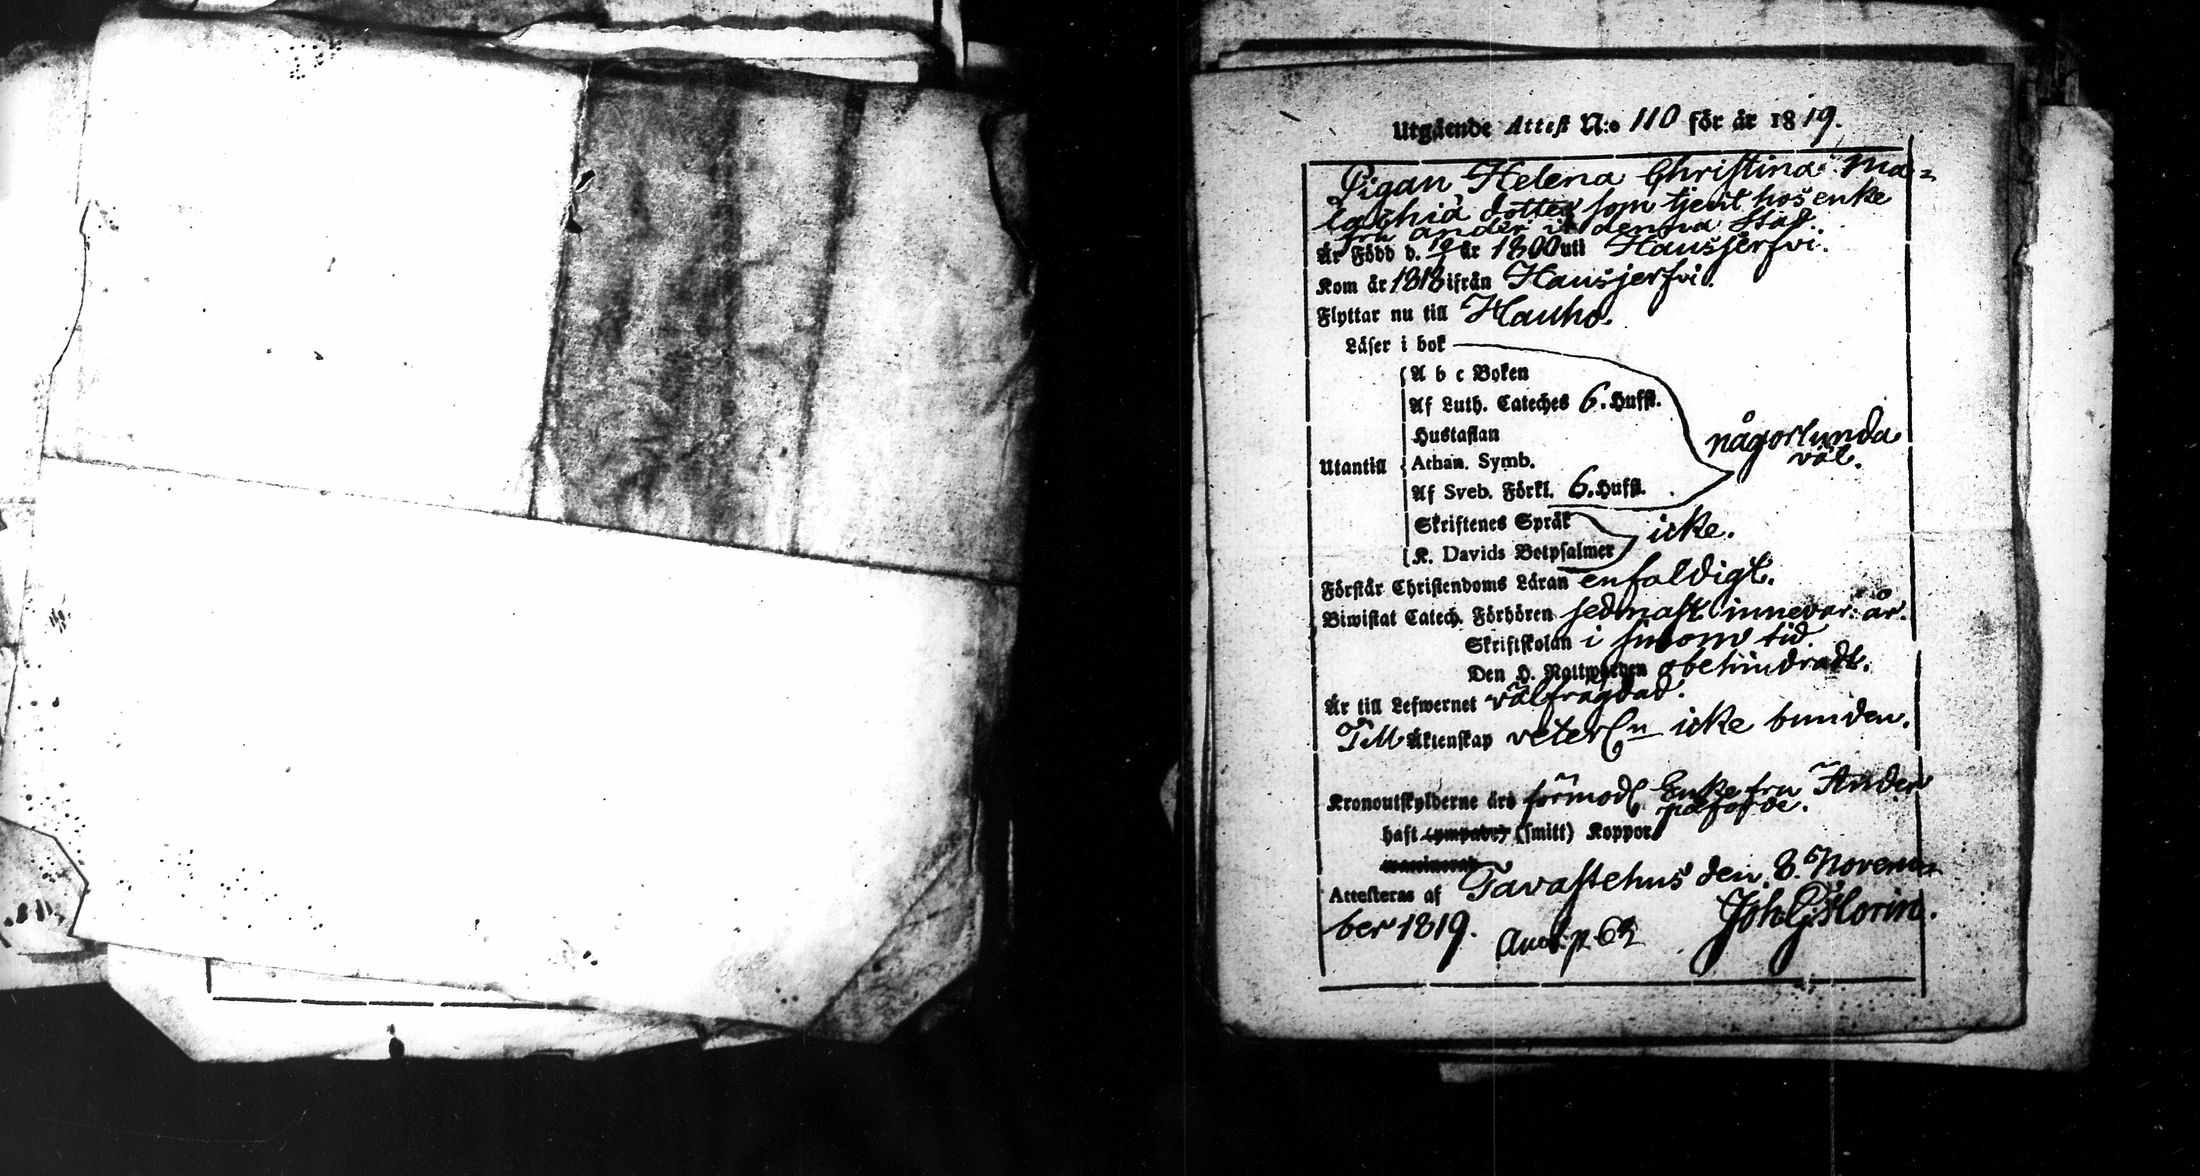 Utgående Attest N:o 110 för år 1819.
Pigan Helena Christina Ma=
lachiä dotter som tjent hos enke
fru Ander i denna Stad.
Är Född d. år 1800 uti Hausjerfvi.
Kom år 1818 ifrån Hausjerfvi.
Flyttar nu till Hauho.
Läser i bok
A b c Boken
Af Luth. Cateches 6. Hufst.
Hustaflan
någorlunda
väl.
Utantill
Athan. Symb.
Af Sveb. Förkl. 6. Hufst.
Skriftenes Språk
icke.
K. Davids Botpsalmer
Förstår Christendoms Läran enfaldigt.
Biwistat Catech. Förhören sednast innevar: år.
Skriftskolan i sinom tid.
Den H. Nattwarden obehindradt.
Är till Lefwernet välfrägdad.
Till Äktenskap veterl:n icke bunden.
Kronoutskylderne äro förmodl Enkefru Ander
påförde.
haft (smitt) Koppor
Attesteras af Tavastehus den 8. Novem=
ber 1819. Joh G: